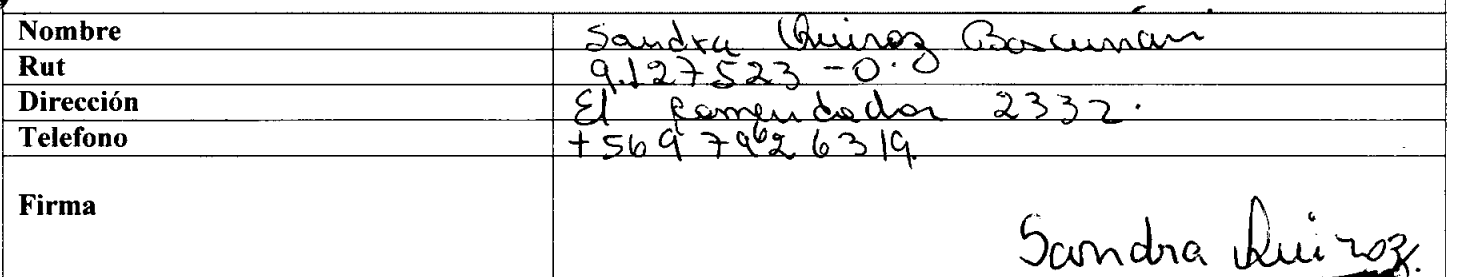 Nombre Sandra Quiroz Bascuñan
Rut 9.127523-0.
Dirección El Comendador 2332.
Telefono
Firma Sandra Quiroz.